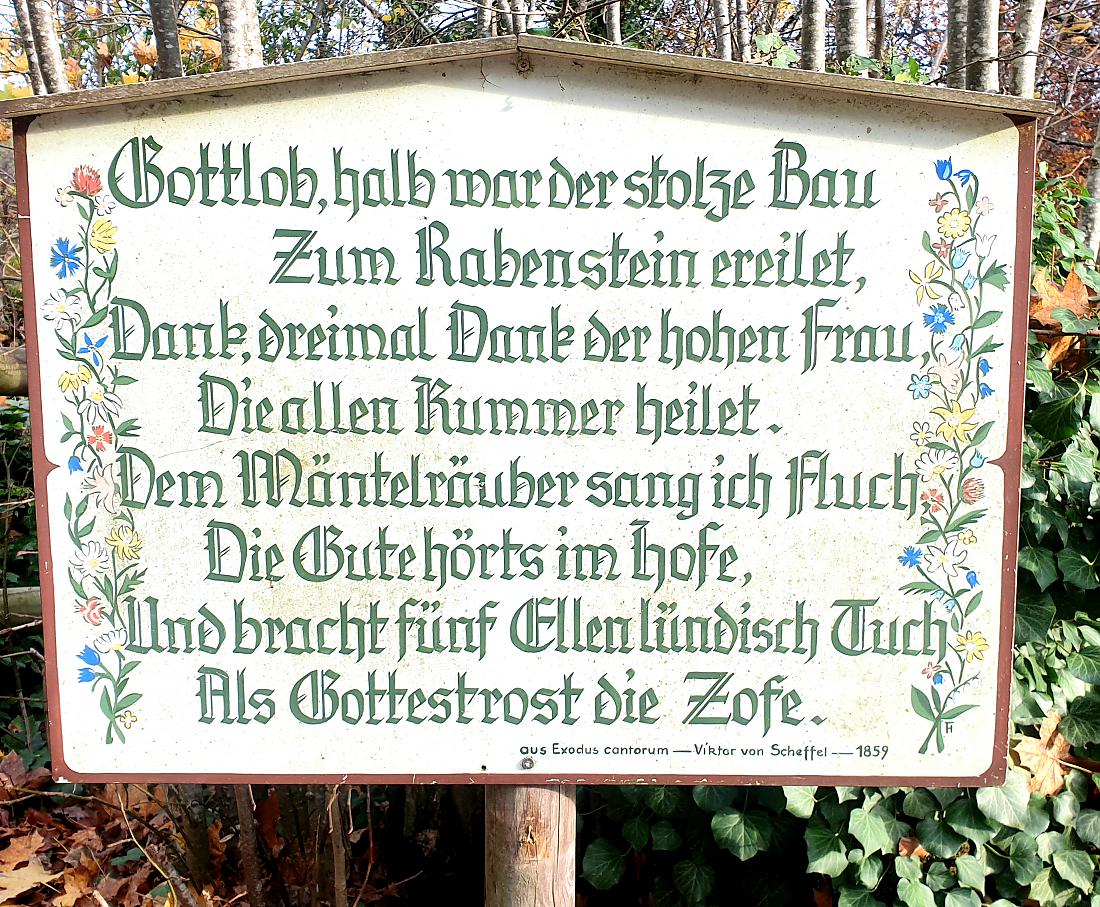 Gottlob, halb war der stolze Bau
Zum Rabenstein ereilet,
Dank, dreimal Dank der hohen Frau,
Die allen Kummer heilet.
Dem Mäntelräuber sang ich Fluch,
Die Gute hörts im Hofe,
Und bracht fünf Ellen lündisch Tuch
Als Gottestrost die Zofe.
aus Exodus cantorum — Viktor von Scheffel — 1859